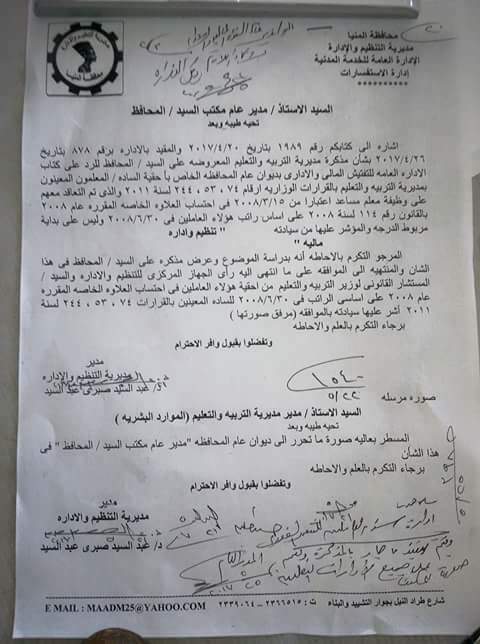 محافظة المنيا
مديرية التنظيم والإدارة
الإدارة العامة للخدمة المدنية
إدارة الاستفسارات
**********
السيد الاستاذ / مدير عام مكتب السيد / المحافظ
تحيه طيبه وبعد
اشاره الى كتابكم رقم ١٩٨٩ بتاريخ ٢٠١٧/٤/٢٠ والمقيد بالاداره برقم ٨٧٨ بتاريخ
٢٠١٧/٤/٢٦ بشأن مذكرة مديرية التربيه والتعليم المعروضه على السيد / المحافظ للرد على كتاب
الاداره العامه للتفتيش المالى والادارى بديوان عام المحافظه الخاص بأ حقية الساده / المعلمون المعينون
بمديرية التربيه والتعليم بالقرارات الوزاريه ارقام ٧٤ ، ٥٣ ، ٢٤٤ لسنة ٢٠١١ والذى تم التعاقد معهم
على وظيفة معلم مساعد اعتبارا من ٢٠٠٨/٣/١٥ فى احتساب العلاوه الخاصه المقرره عام ٢٠٠٨
بالقانون رقم ١١٤ لسنة ٢٠٠٨ على اساس راتب هؤلاء العاملين فى ٢٠٠٨/٦/٣٠ وليس على بداية
مربوط الدرجه والمؤشر عليها من سيادته " تنظيم واداره
ماليه "
المرجو التكرم بالاحاطه أنه بدراسة الموضوع وعرض مذكره على السيد / المحافظ فى هذا
الشان والمنتهيه الى الموافقه على ما انتهى اليه رأى الجهاز المركزى للتنظيم والاداره والسيد /
المستشار القانونى لوزيرة التربيه والتعليم من احقية هؤلاء العاملين فى احتساب العلاوه الخاصه المقرره
عام ٢٠٠٨ على اساسى الراتب فى ٢٠٠٨/٦/٣٠ للساده المعينين بالقرارات ٧٤ ، ٥٣ ، ٢٤٤ لسنة
٢٠١١ أشر عليها سيادته بالموافقه (مرفق صورتها )
برجاء التكرم بالعلم والاحاطه
وتفضلوا بقبول وافر الاحترام
مدير
مديرية التنظيم والإداره
د/ عبد السيد صبرى عبد السيد
١٥٤٠
٥/٢٢
صوره مرسله
السيد الاستاذ / مدير مديرية التربيه والتعليم (الموارد البشريه )
تحيه طيبه وبعد
المسطر بعاليه صورة ما تحرر الى ديوان عام المحافظه "مدير عام مكتب السيد / المحافظ " فى
هذا الشأن
برجاء التكرم بالعلم والاحاطه
وتفضلوا بقبول وافر الاحترام
مدير
مديرية التنظيم والاداره
د/ عبد السيد صبرى عبد السيد
شارع طراد النيل بجوار التشييد والبناء ت : ٢٣٦٦٥١٥ – ٢٣٣٩٠٦٤ E MAIL : MAADM25@YAHOO.COM